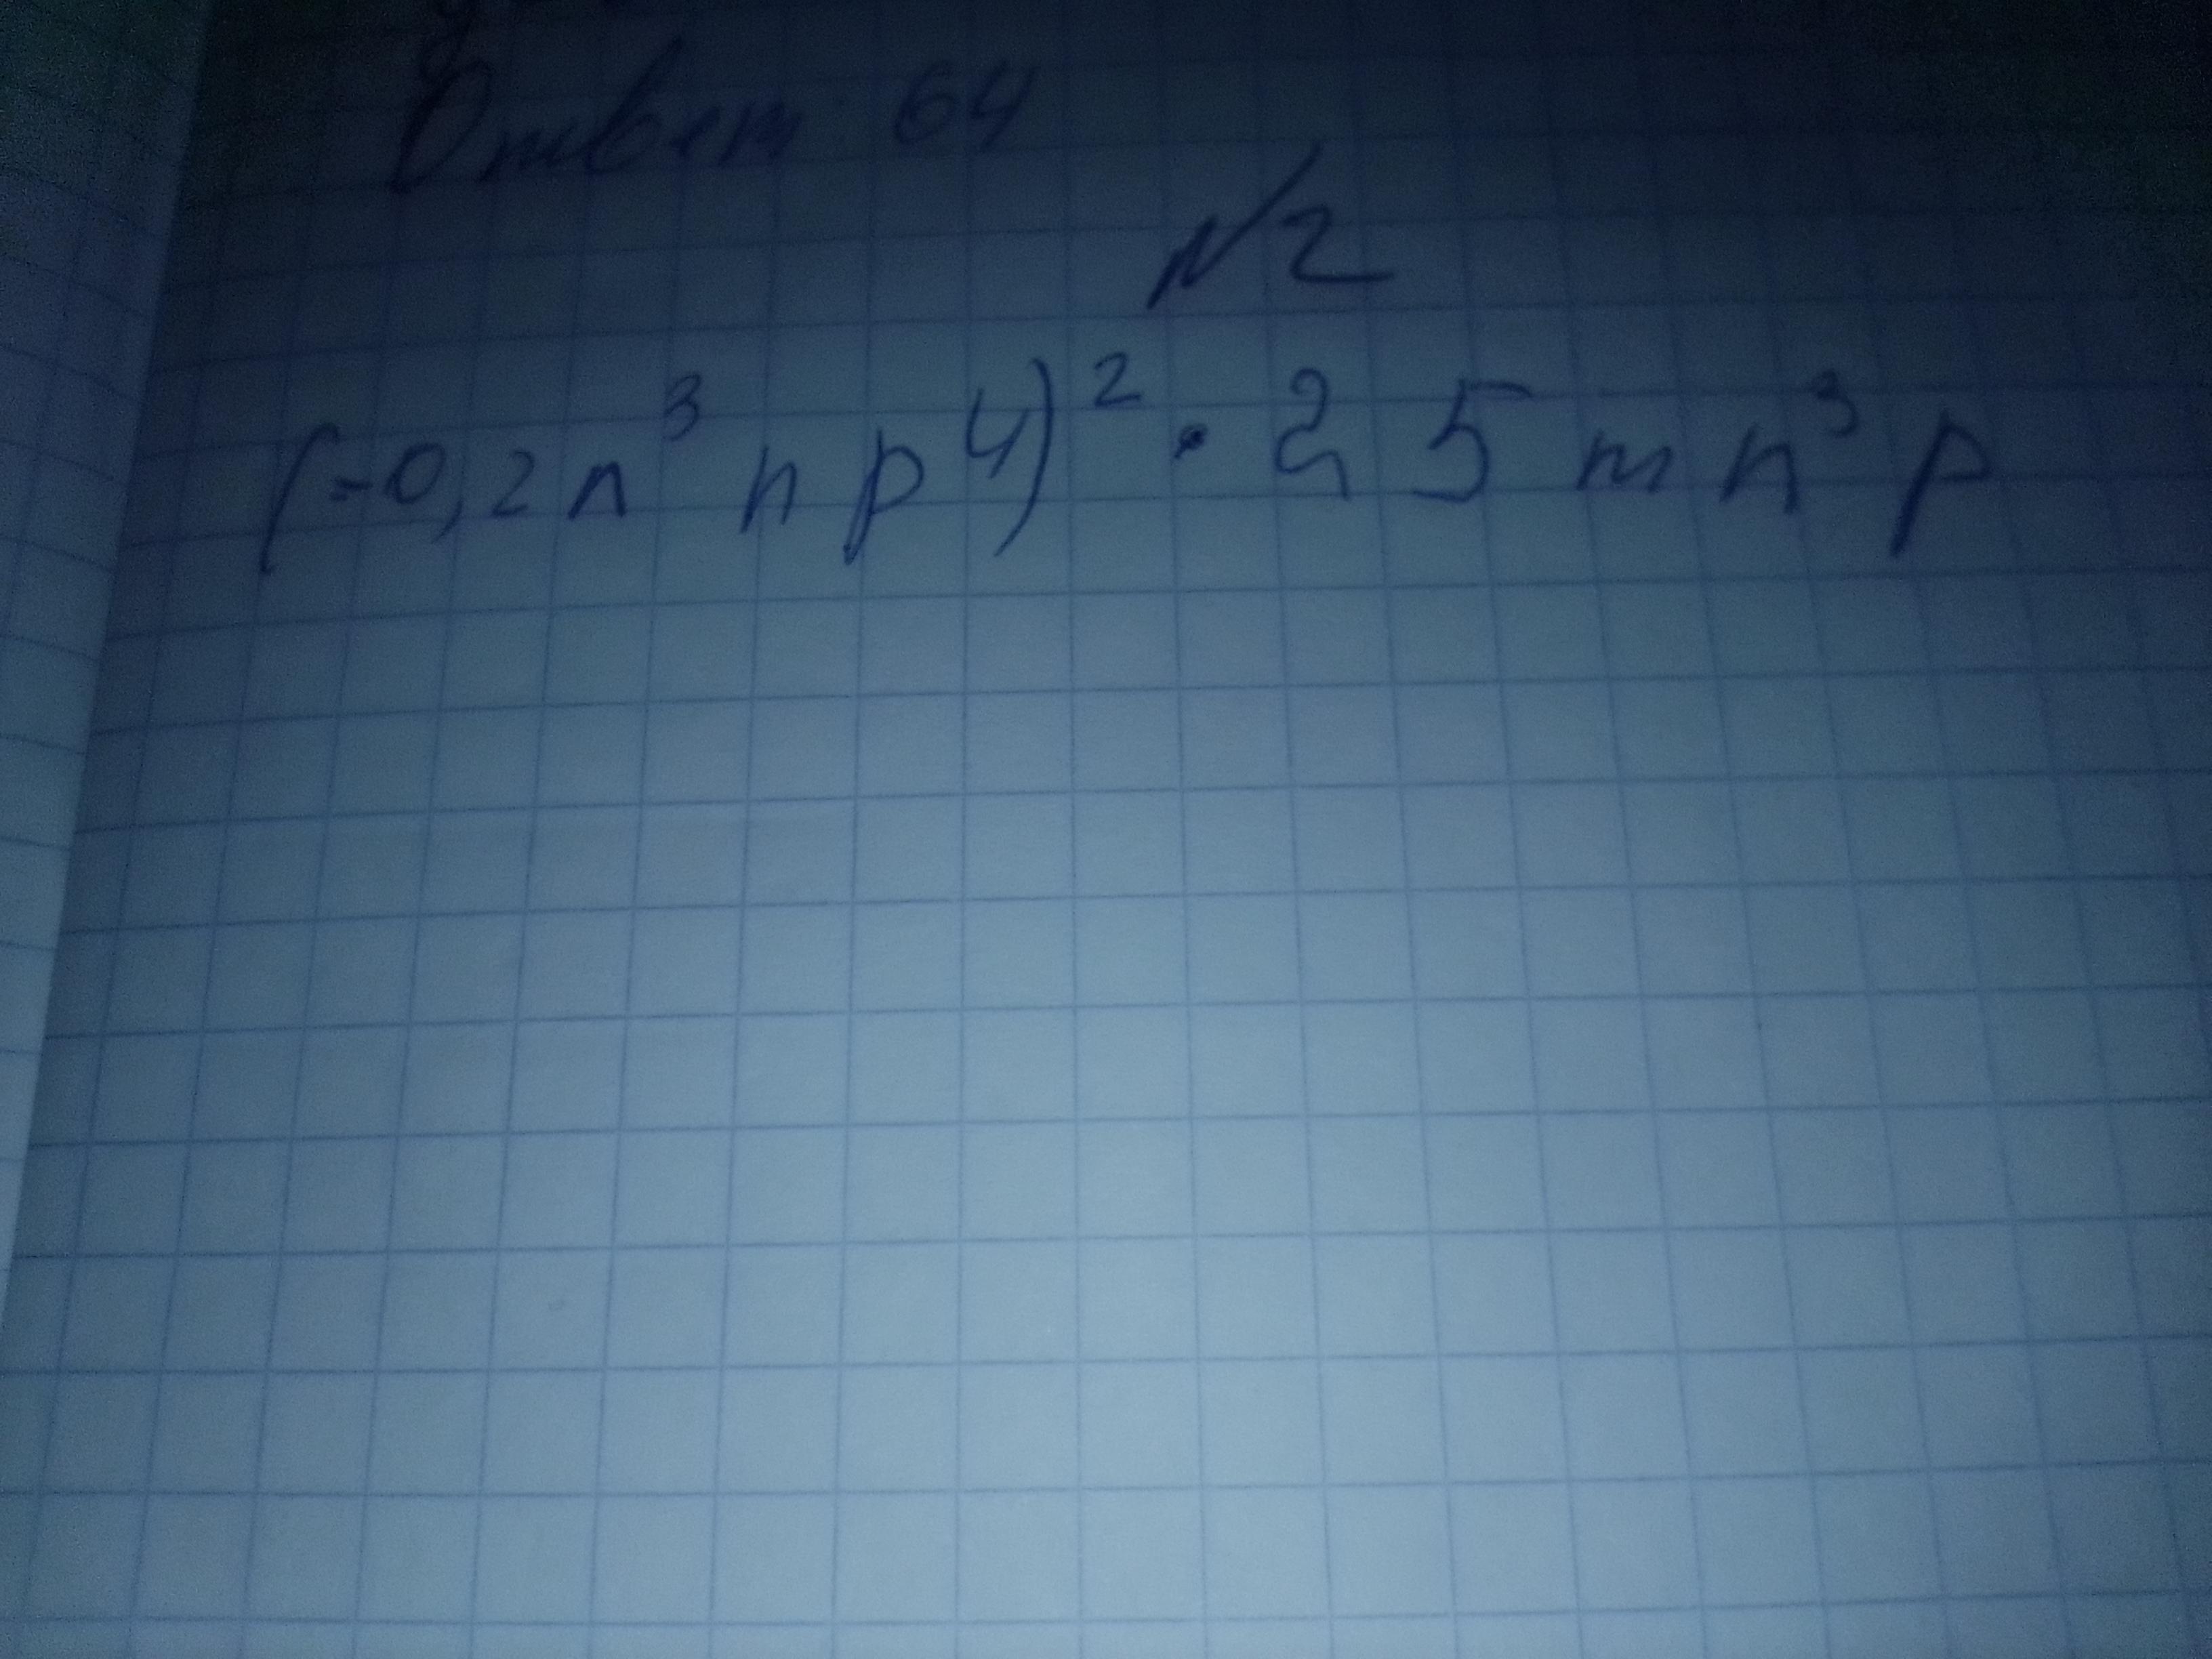 Ответ: 64
№2
(-0,2n³ n p 4)² · 2 5 m n³ p